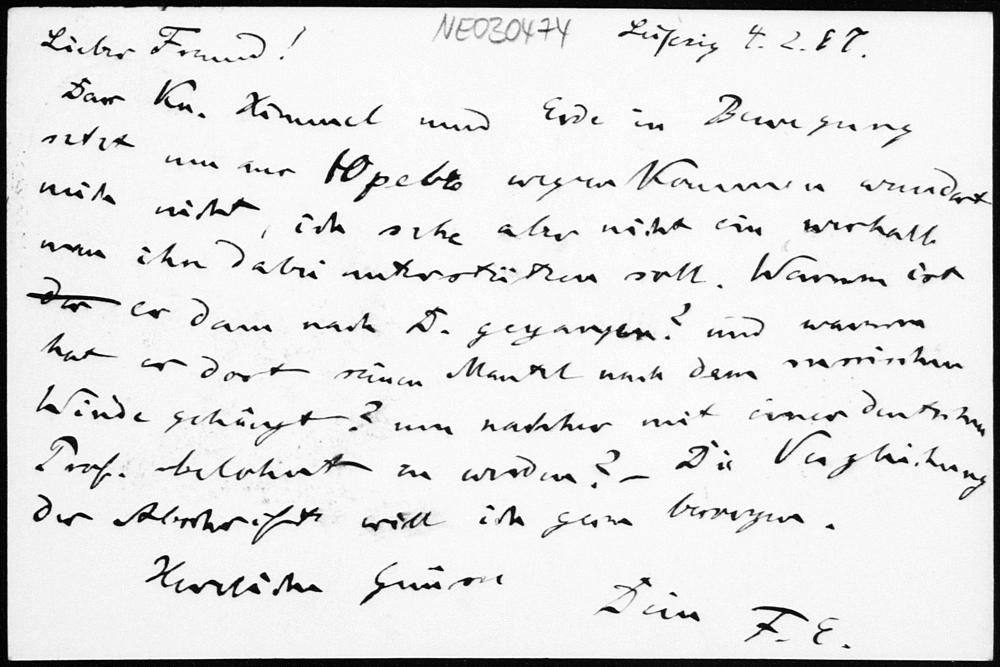 NE030474
Lieber Freund! Leipzig 4.2.87.
Dass Kn. Himmel und Erde in Bewegung
setzt um aus Юрьевъ wegzukommen wundert
mich nicht, ich sehe aber nicht ein weshalb
man ihn dabei unterstützen soll. Warum ist
er dann nach D. gegangen? und warum
hat er dort seinen Mantel nach dem russischen
Winde gehängt? um nachher mit einer deutschen
Prof. belohnt zu werden? – Die Vergleichung
der Abschrift will ich gern besorgen.
Herzliche Grüsse
Dein F. E.